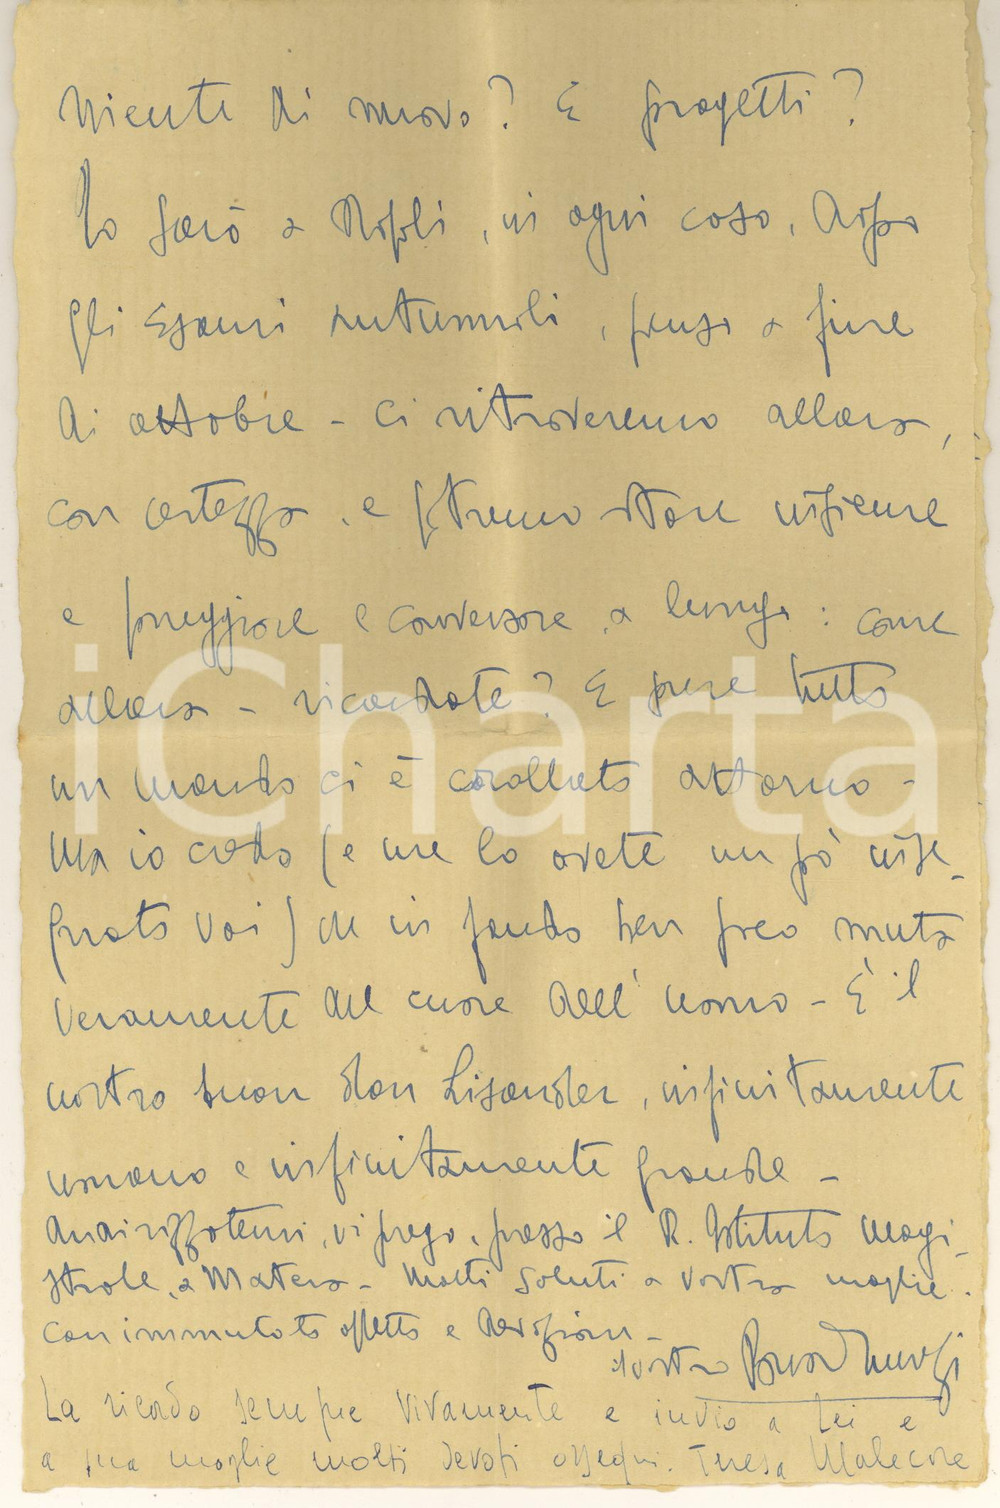 Niente di nuovo? E progetti?
Io sarò a Napoli, in ogni caso, dopo
gli esami autunnali, penso a fine
di ottobre - Ci ritroveremo allora,
con certezza, e potremo stare insieme
e passeggiare e conversare, a lungo: come
allora - ricordate? E pure tutto
un mondo ci è crollato attorno -
Ma io credo (e me lo avete un pò inse-
gnato voi) che in fondo ben poco muta
veramente del cuore dell'uomo - È il
nostro buon don Lisander, infinitamente
umano e infinitamente grande -
Indirizzatemi, vi prego, presso il R. Istituto Magi-
strale, a Matera - Molti saluti a vostra moglie.
Con immutato affetto e devozione -
Vostro
La ricordo sempre vivamente e invio a Lei e
a sua moglie molti devoti ossequi. Teresa Malecore
iCharta